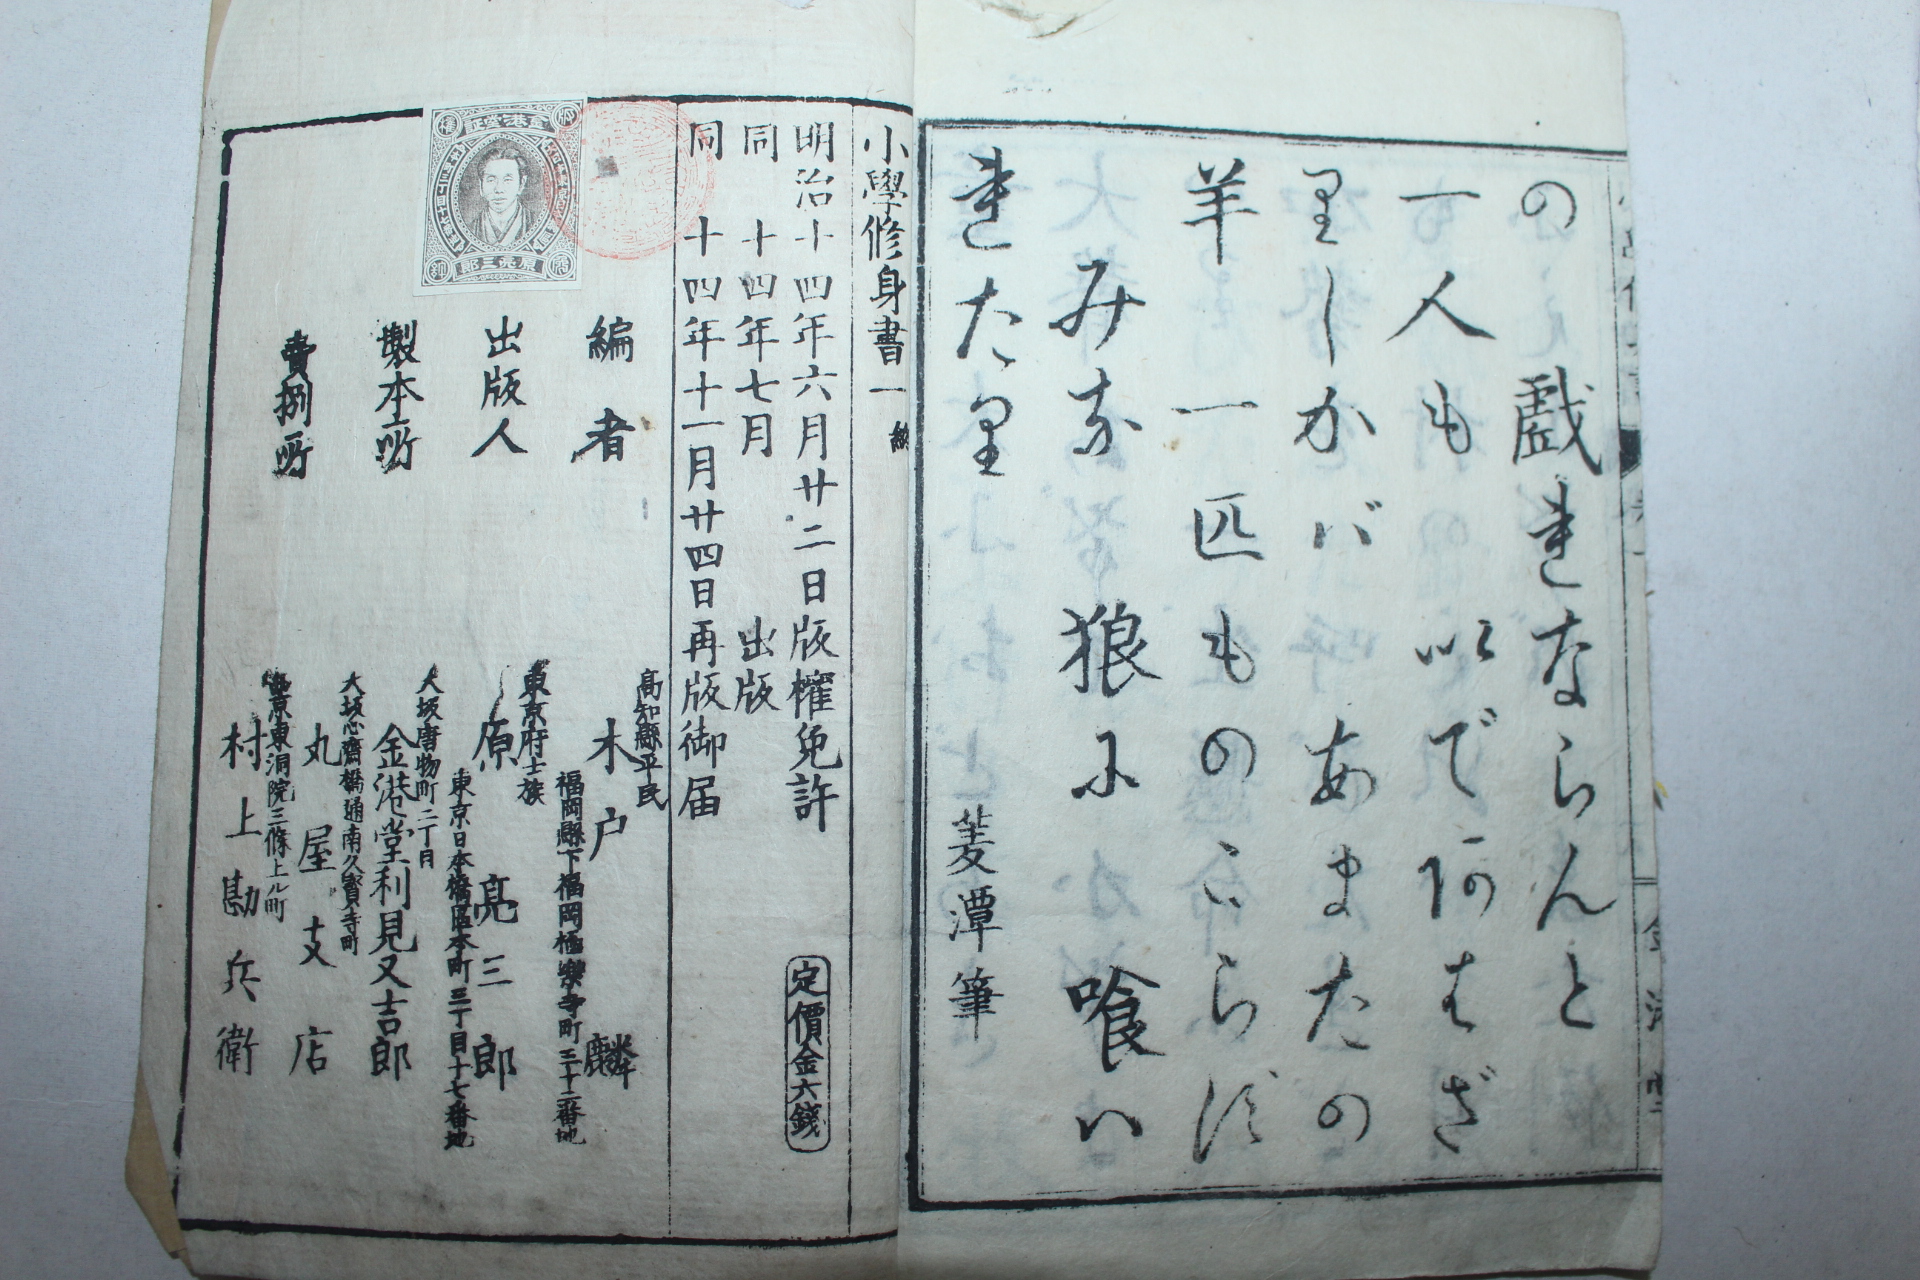 の戯れならんと
一人も以で阿はざ
りしかバあまたの
羊一匹ものこらず
みな狼に喰い
れたり
菱潭筆
小學修身書一 終
明治十四年六月廿二日版權免許
同 十四年七月 出版
同 十四年十一月廿四日再版御届
定價金六錢
編者
高知縣平民
木戸麟
福岡縣下福岡極樂寺町三十二番地
出版人
東京府士族
原亮三郎
東京日本橋區本町三丁目十七番地
製本所
大坂唐物町二丁目
金港堂利見又吉郎
賣捌所
大坂心齋橋通南久寳寺町
丸屋支店
京東洞院三條上ル町
村上勘兵衛
金港堂證
原亮三郎